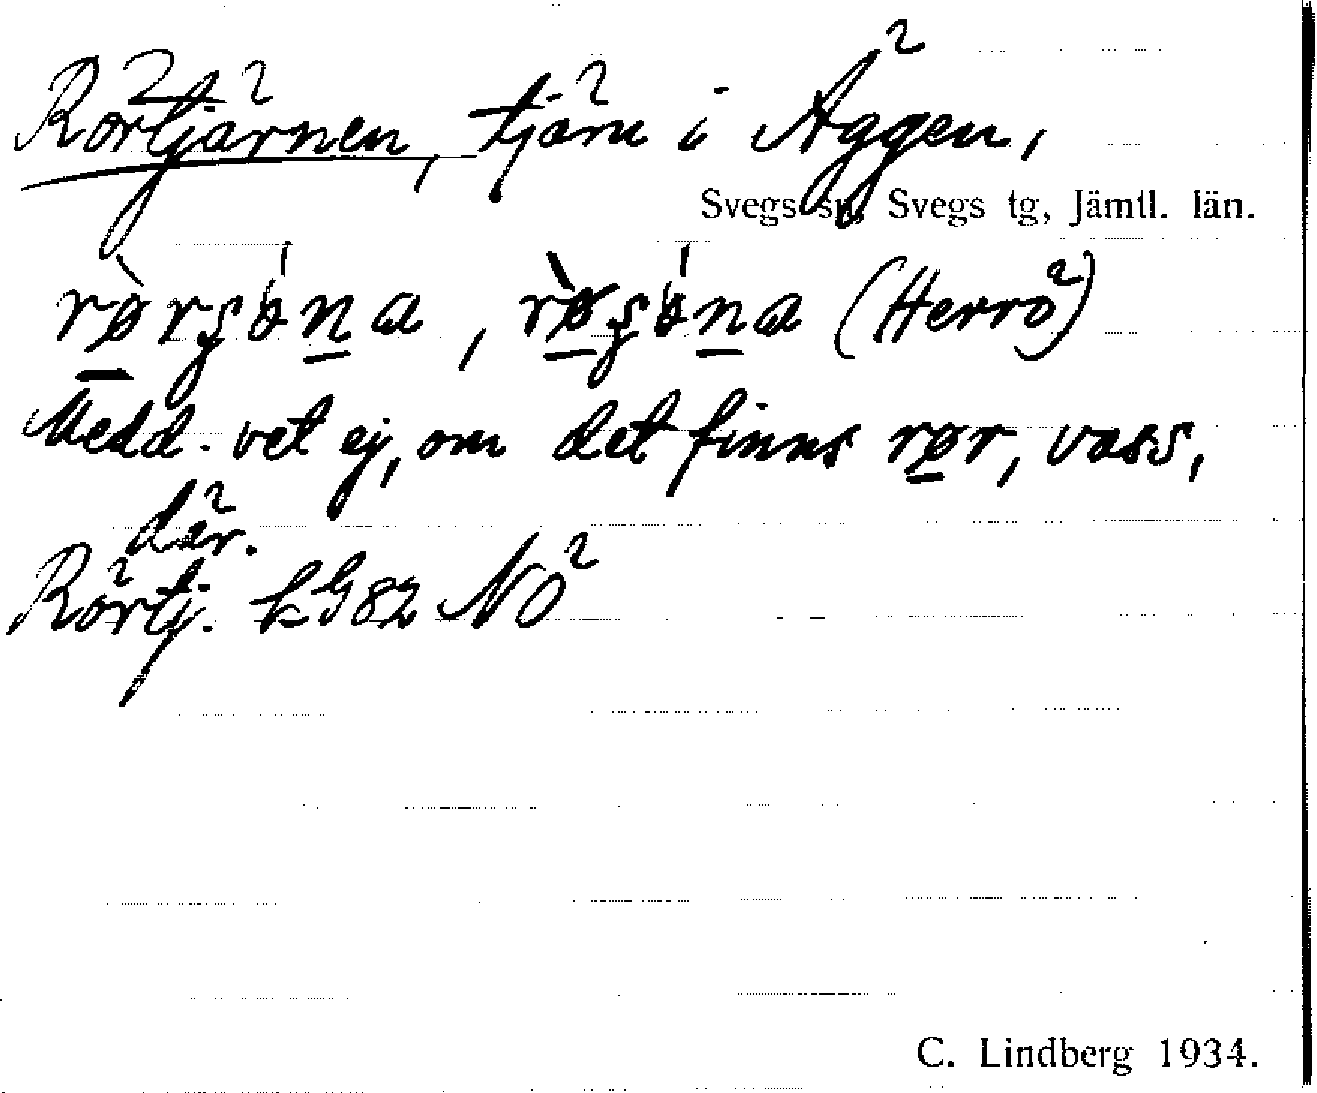 Rörtjärnen, tjärn i Äggen,
Svegs sn, Svegs tg, Jämtl. län.
rø̱rʂɵ́n̲a, rø̱ʂɵ́n̲a (Herrö)
Medd. vet ej, om det finns rø̱r, vass,
där.
Rörtj. kG82 NÖ
C. Lindberg 1934.